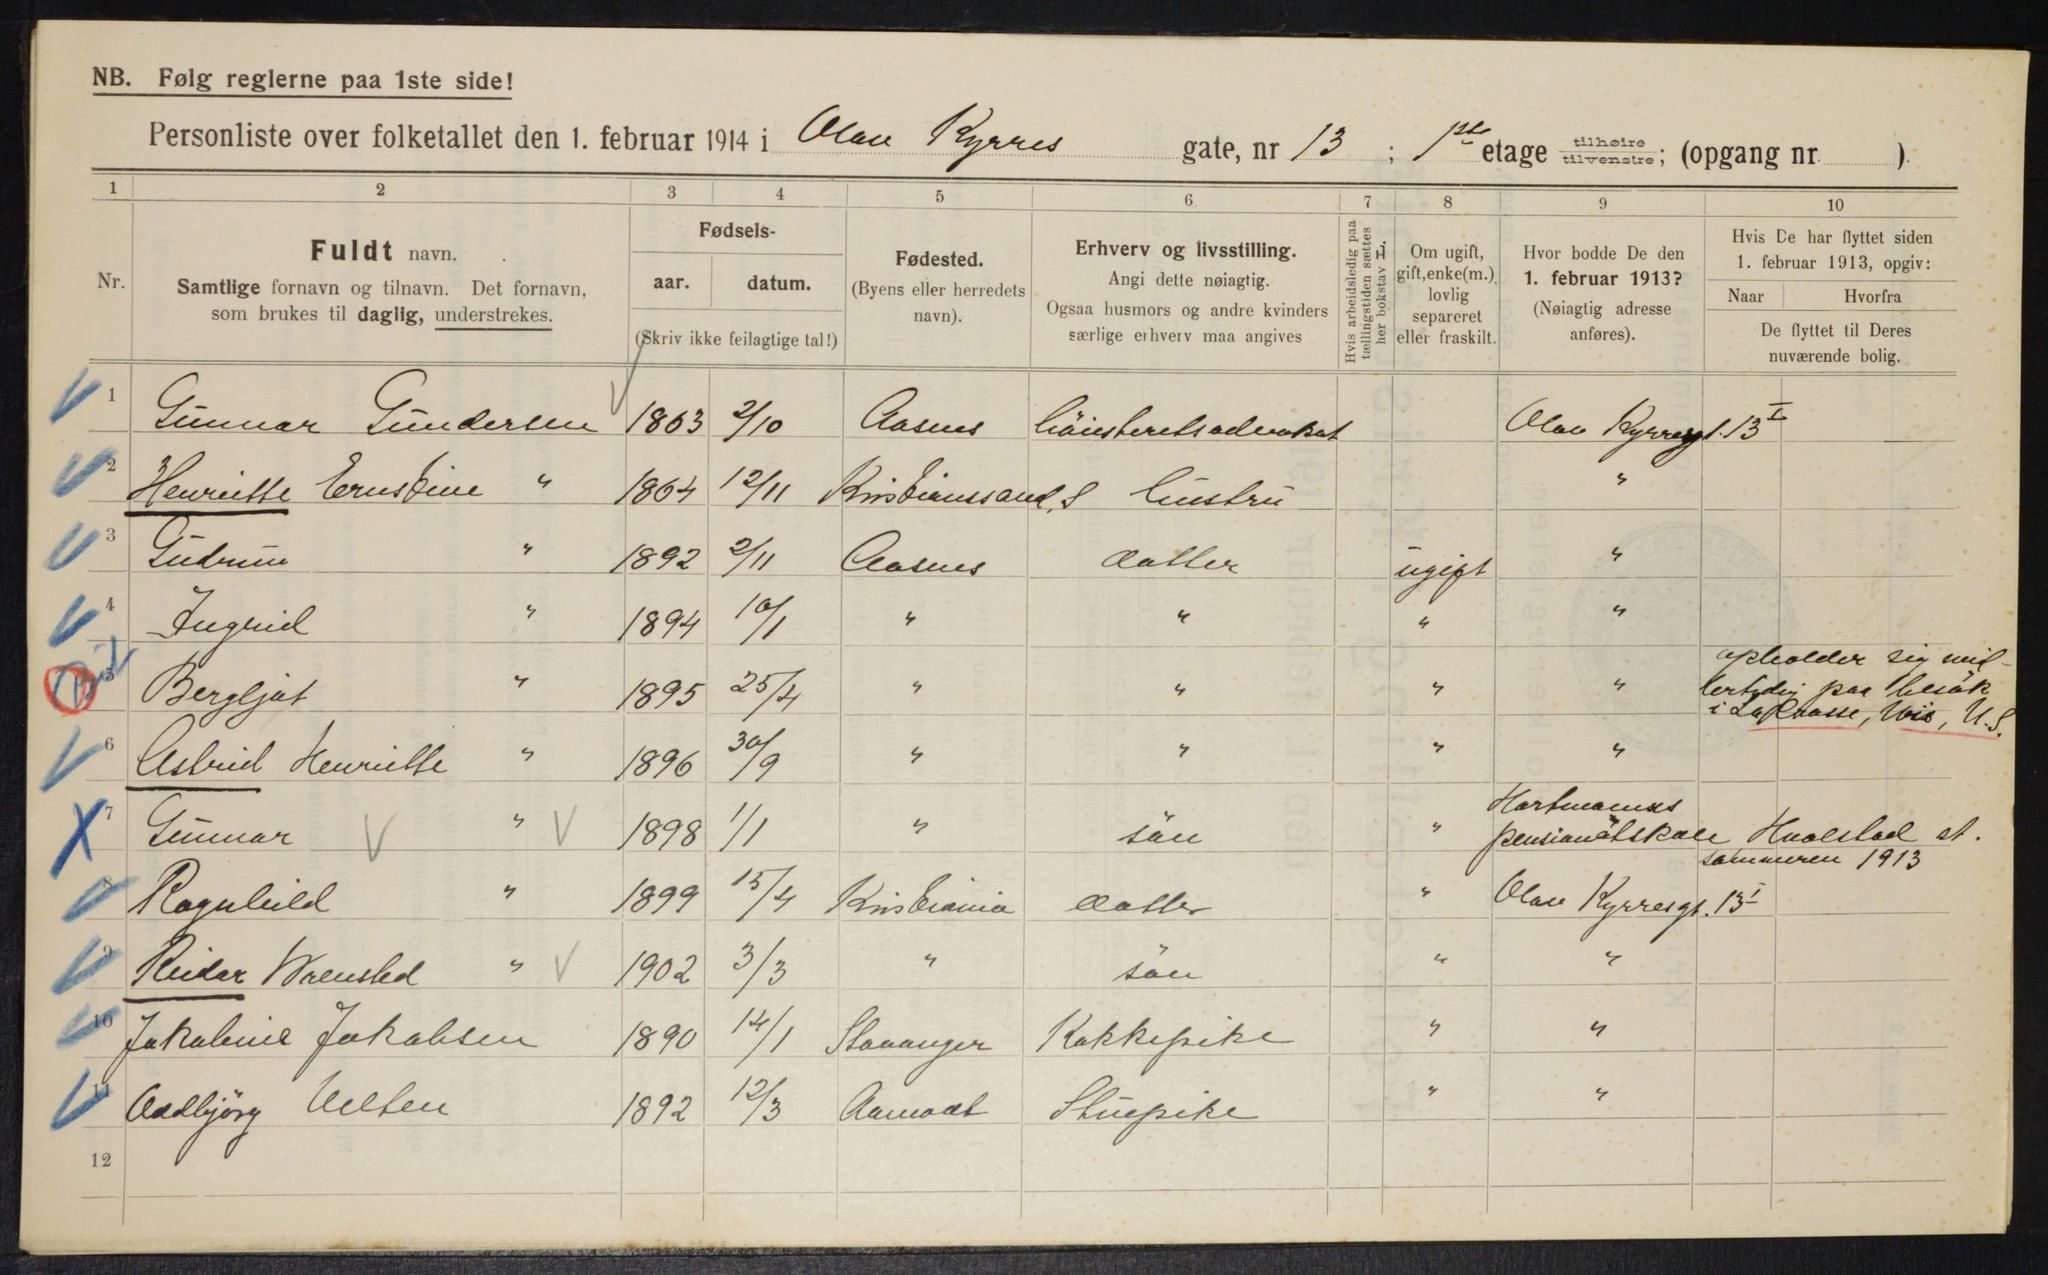 NB. Følg reglerne paa 1ste side!
Personliste over folketallet den 1. februar 1914 i Olav Kyrres gate, nr 13 ; 1ste etage tilhøire tilvenstre; (opgang nr. ).
1 2 3 4 5 6 7 8 9 10
Nr. Fuldt navn. Samtlige fornavn og tilnavn. Det fornavn, som brukes til daglig, understrekes.
Fødsels- aar. datum. (Skriv ikke feilagtige tal!)
Fødested. (Byens eller herredets navn).
Erhverv og livsstilling. Angi dette nøiagtig. Ogsaa husmors og andre kvinders særlige erhverv maa angives
Hvis arbeidsledig paa tællingstiden sættes her bokstav L.
Om ugift, gift, enke(m.), lovlig separeret eller fraskilt.
Hvor bodde De den 1. februar 1913? (Nøiagtig adresse anføres).
Hvis De har flyttet siden 1. februar 1913, opgiv: Naar Hvorfra De flyttet til Deres nuværende bolig.
1 Gunnar Gundersen 1863 2/10 Aasnes Höiesteretsadvokat Olav Kyrresgt. 13 I
2 Henriette Ernstine " 1864 12/11 Kristianssand S. Hustru "
3 Gudrun " 1892 2/11 Aasnes datter ugift "
4 Ingrid " 1894 10/1 " " " "
5 Bergljot " 1895 25/4 " " " " opholder sig mid-
lertidig paa besök
i LaCrosse, Wis, U.S.
6 Astrid Henriette " 1896 30/9 " " " "
7 Gunnar " 1898 1/1 " sön " Hartmanns
pensionatskole Hvalstad st.
sommeren 1913
8 Ragnhild " 1899 15/4 Kristiania datter " Olav Kyrresgt. 13 I
9 Reidar Wrensted " 1902 3/3 " sön " "
10 Jakobine Jakobsen 1890 14/1 Stavanger Kokkepike " "
11 Oddbjörg Uelsen 1892 12/3 Aamodt Stuepike " "
12